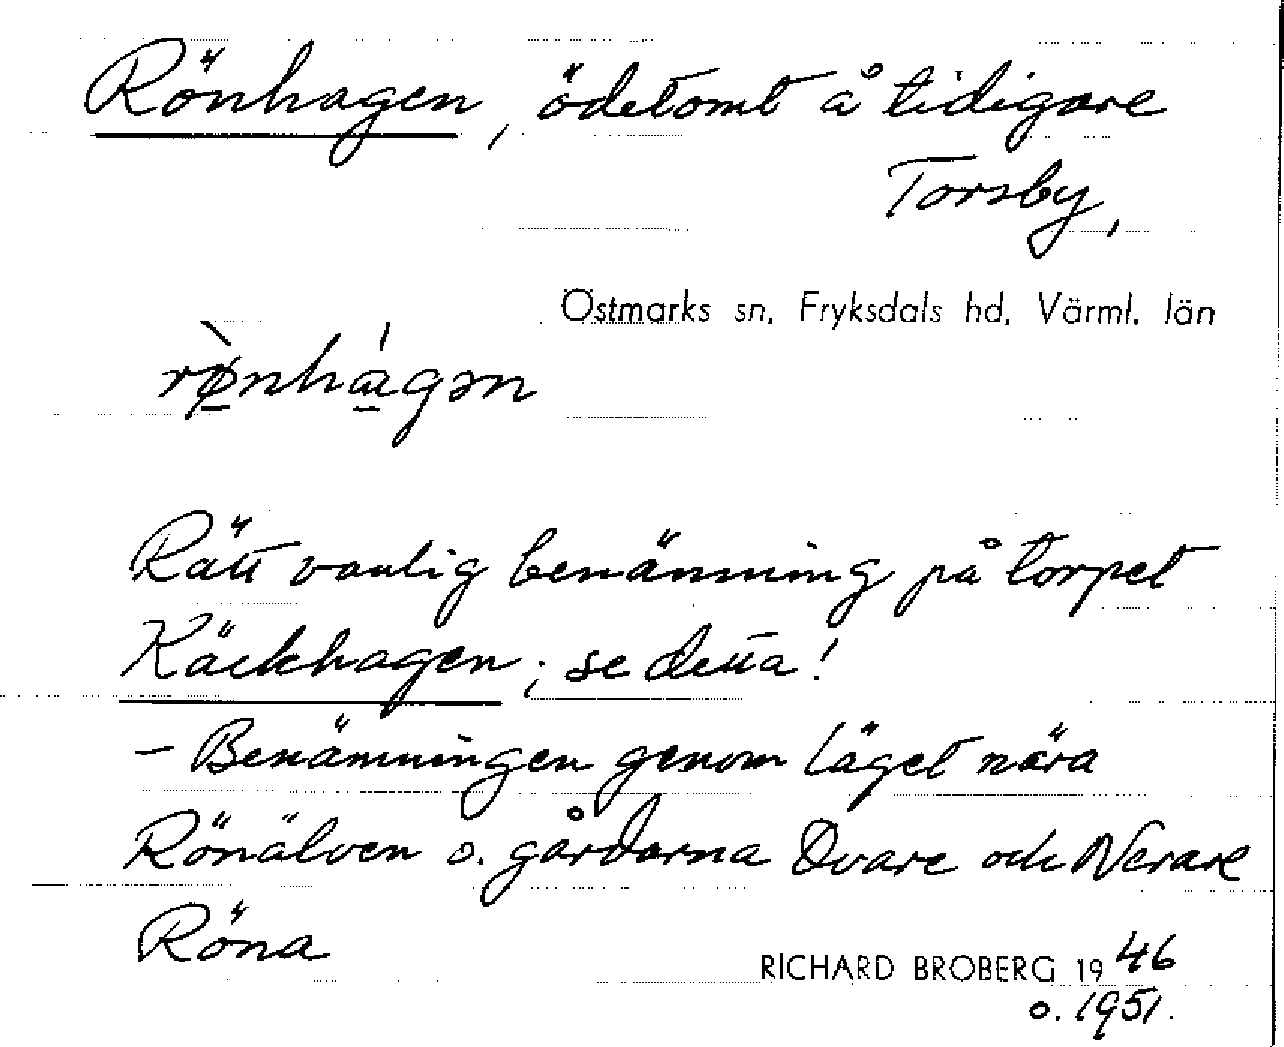 Rönhagen, ödetomt å tidigare
Torsby,
Östmarks sn, Fryksdals hd, Värml. län
rø̀nhágən
Rätt vanlig benämning på torpet
Käckhagen; se detta!
– Benämningen genom läget nära
Rönälven o. gårdarna Övare och Nerare
Röna
RICHARD BROBERG 1946
o. 1951.